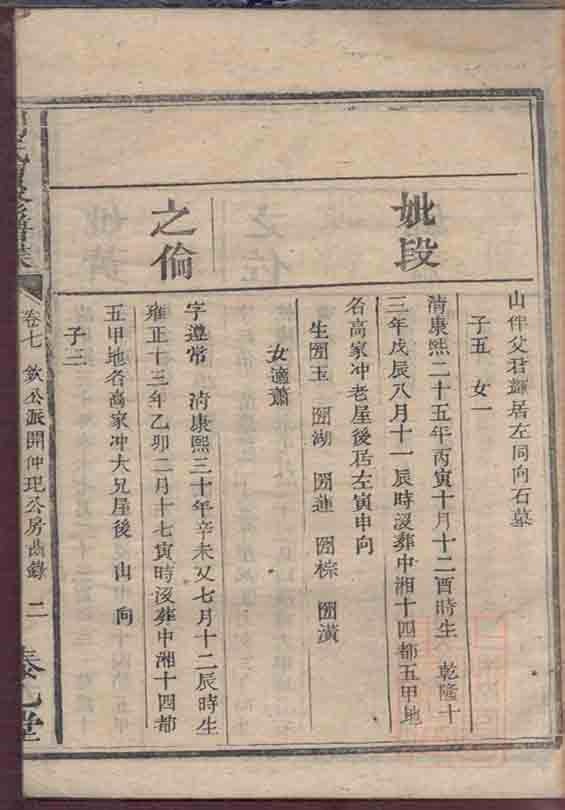 山伴父君輝居左同向石墓
子五 女一
妣段
清康熙二十五年丙寅十月十二酉時生 乾隆十
三年戊辰八月十一辰時沒葬中湘十四都五甲地
名高家冲老屋後居左寅申向
生圀玉 圀湖 圀蓮 圀棕 圀潢
女適蕭
之倫
字遵常 清康熙三十年辛未又七月十二辰時生
雍正十三年乙卯二月十七寅時沒葬中湘十四都
五甲地名高家冲大兄屋後 山 向
子三
卷七 欽公派開仲玘公房齒錄 二
堂